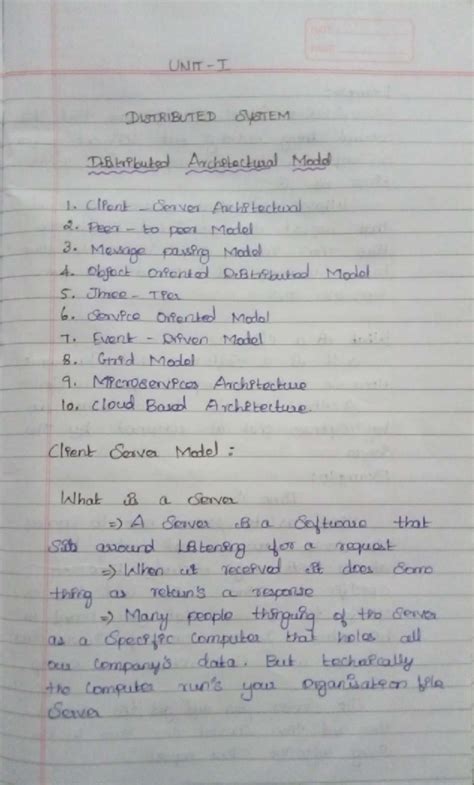 UNIT-I
DISTRIBUTED SYSTEM
Distributed Architectural Model
1. Client - Server Architectual
2. Peer - to peer Model
3. Message passing Model
4. Object Oriented Distributed Model
5. Three - Tier
6. Service Oriented Model
7. Event - Driven Model
8. Grid Model
9. Microservices Architecture
10. Cloud Based Architecture
Client Server Model :
What is a Server
=) A Server is a Software that
Sits around Listening for a request
=) When it received it does Some
thing as return's a response
=) Many people thinguing of the Server
as a Specific Computer that holes all
our Company's data. But techically
the Computer run's your Organisation file
Server